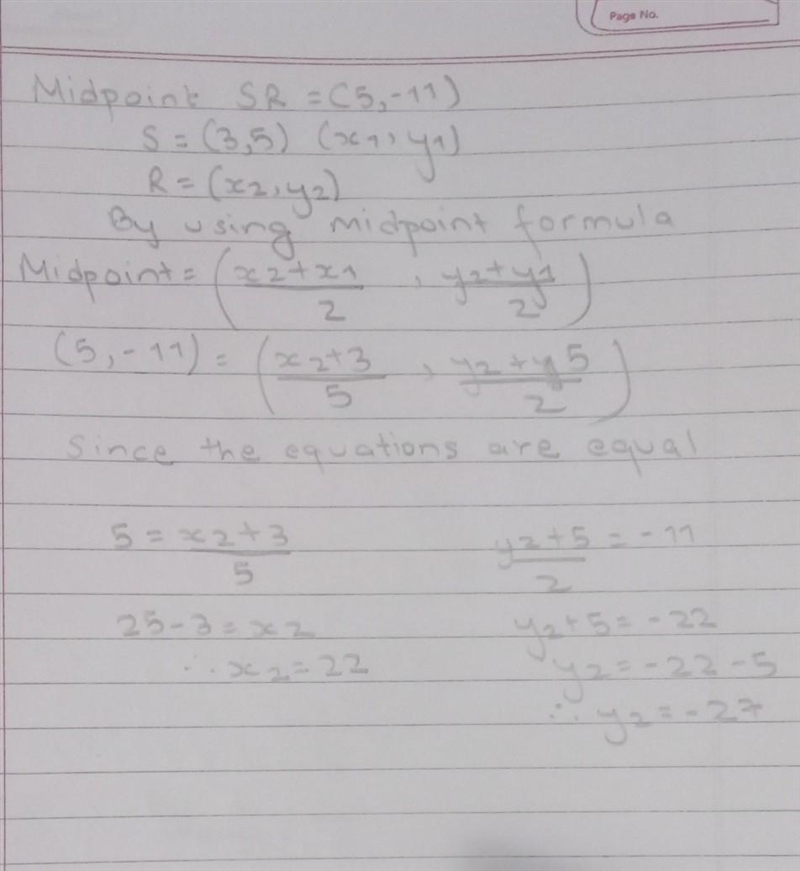 Page No.
Midpoint SR = (5,-11)
S = (3,5) (x1, y1)
R = (x2, y2)
By using midpoint formula
Midpoint = (x2+x1/2 , y2+y1/2)
(5,-11) = (x2+3/5 , y2+y5/2)
Since the equations are equal
5 = x2+3/5 y2+5/2 = -11
25-3 = x2 y2+5 = -22
∴ x2 = 22 y2 = -22-5
∴ y2 = -27